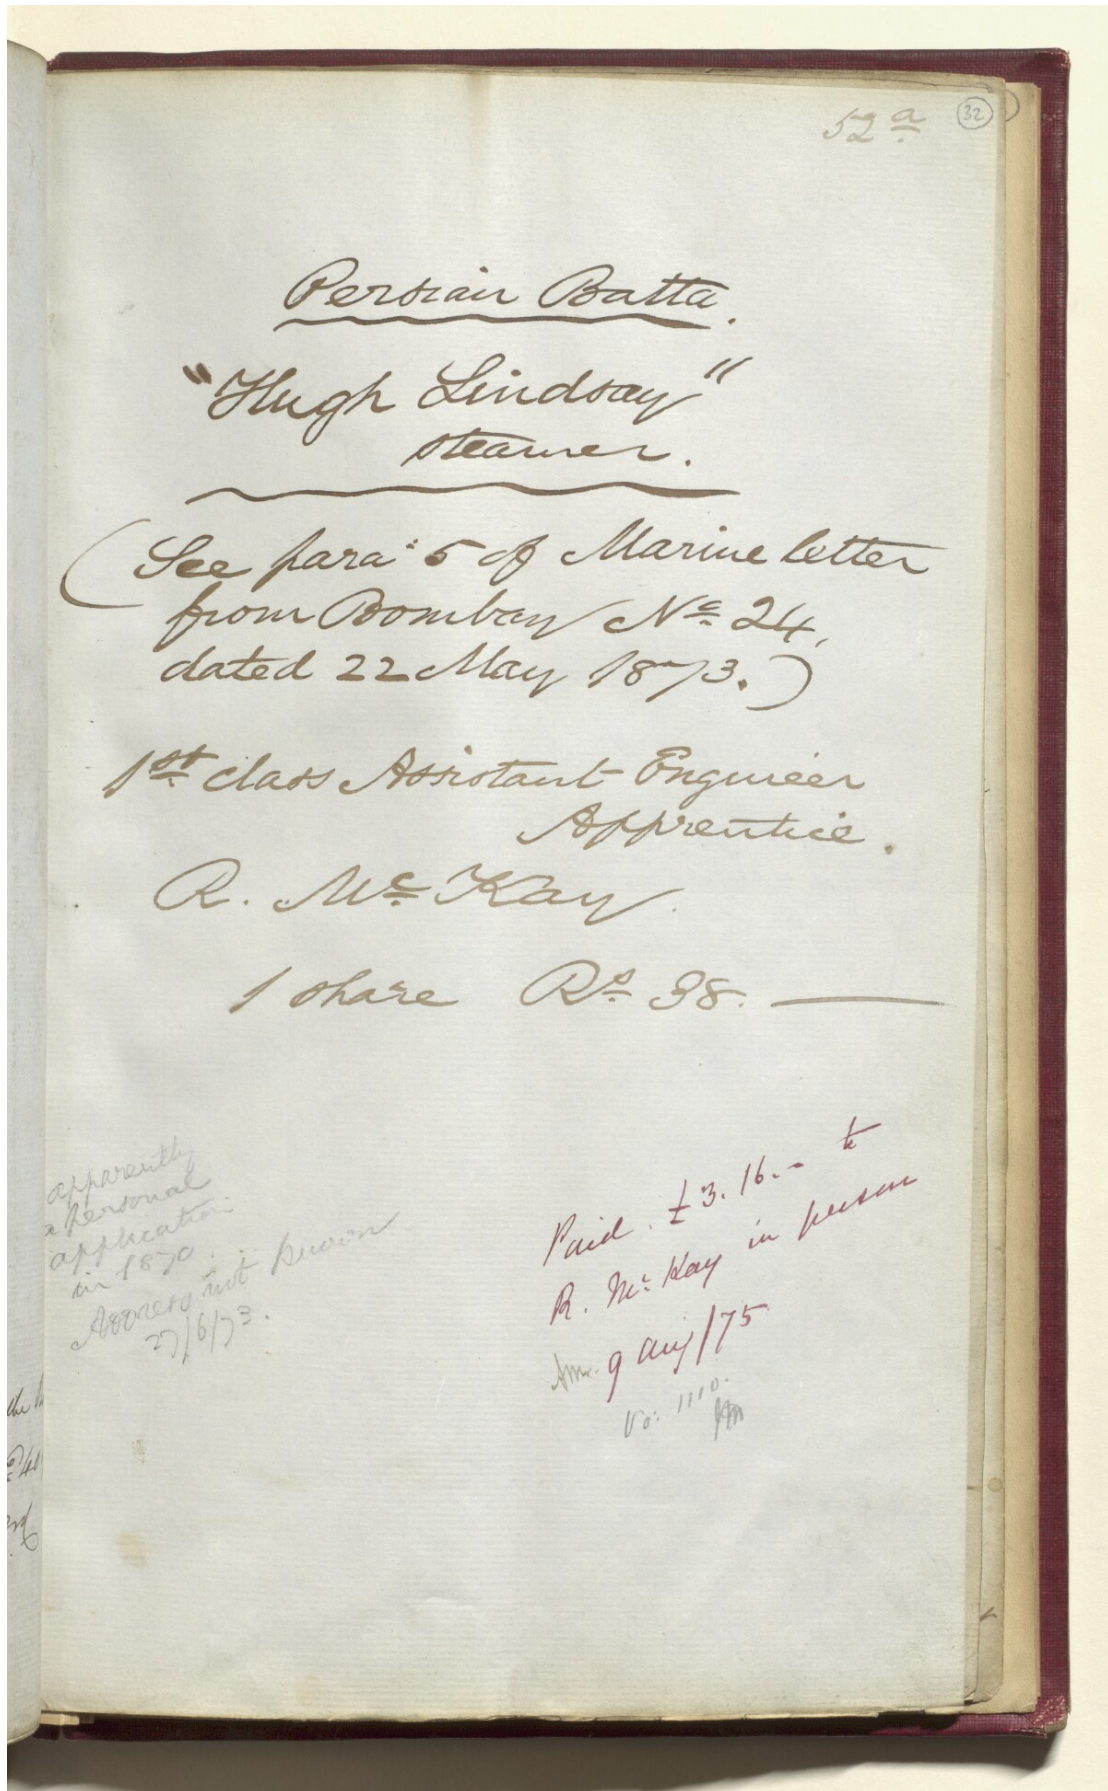 52a
32
Persian Batta.
"Hugh Lindsay"
steamer.
(See para: 5 of Marine letter
from Bombay No. 24,
dated 22 May 1873.)
1st class Assistant Engineer
Apprentice.
R. Mc Kay.
1 share Rs 38.
apparently
a personal
application
in 1870.
Address not known
27/6/73.
Paid. £3. 16. - to
R. Mc Kay in person
9 Aug/75
No: 1110.